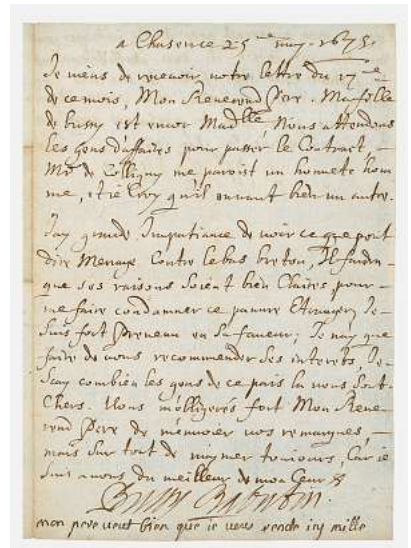 a Chaseu ce 25me may. 1675.
Je viens de recevoir vostre lettre du 17me
de ce mois, Mon Reverend Pere. Ma fille
de bussy est encor Madlle. Nous attendons
les gens d'affaires pour passer le Contract,
Mr de Colligny me paroist un honneste hom
me, et ie croy qu'il en vaut bien un autre.
J'ay grande Impatiance de voir ce que peut
dire Menage Contre le bas breton, Il faudra
que ses raisons soient bien Claires pour
me faire condamner ce pauvre Etranger. Je
suis fort prevenu en sa faveur; Je n'ay que
faire de vous recommender ses interets, Je
scay combien les gens de ce païs la vous sont
Chers. Vous m'obligerés fort Mon Reve
rend Pere de m'envoier vos remarques,
mais sur tout de m'aymer tousiours, Car ie
suis a vous du meilleur de mon Coeur
Bussy Rabutin.
mon pere veut bien que ie vous rende icy mille